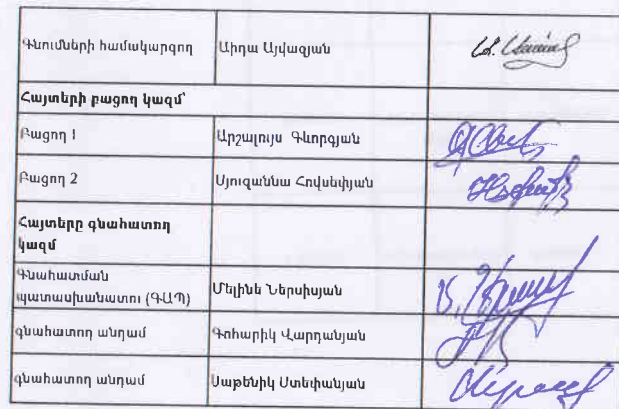 Գնումների համակարգող Աիդա Այվազյան
Հայտերի բացող կազմ՝
Բացող 1 Արշալույս Գևորգյան
Բացող 2 Սյուզաննա Հովսեփյան
Հայտերը գնահատող
կազմ
Գնահատման
պատասխանատու (ԳԱՊ) Մելինե Ներսիսյան
գնահատող անդամ Գոհարիկ Վարդանյան
գնահատող անդամ Սաթենիկ Ստեփանյան